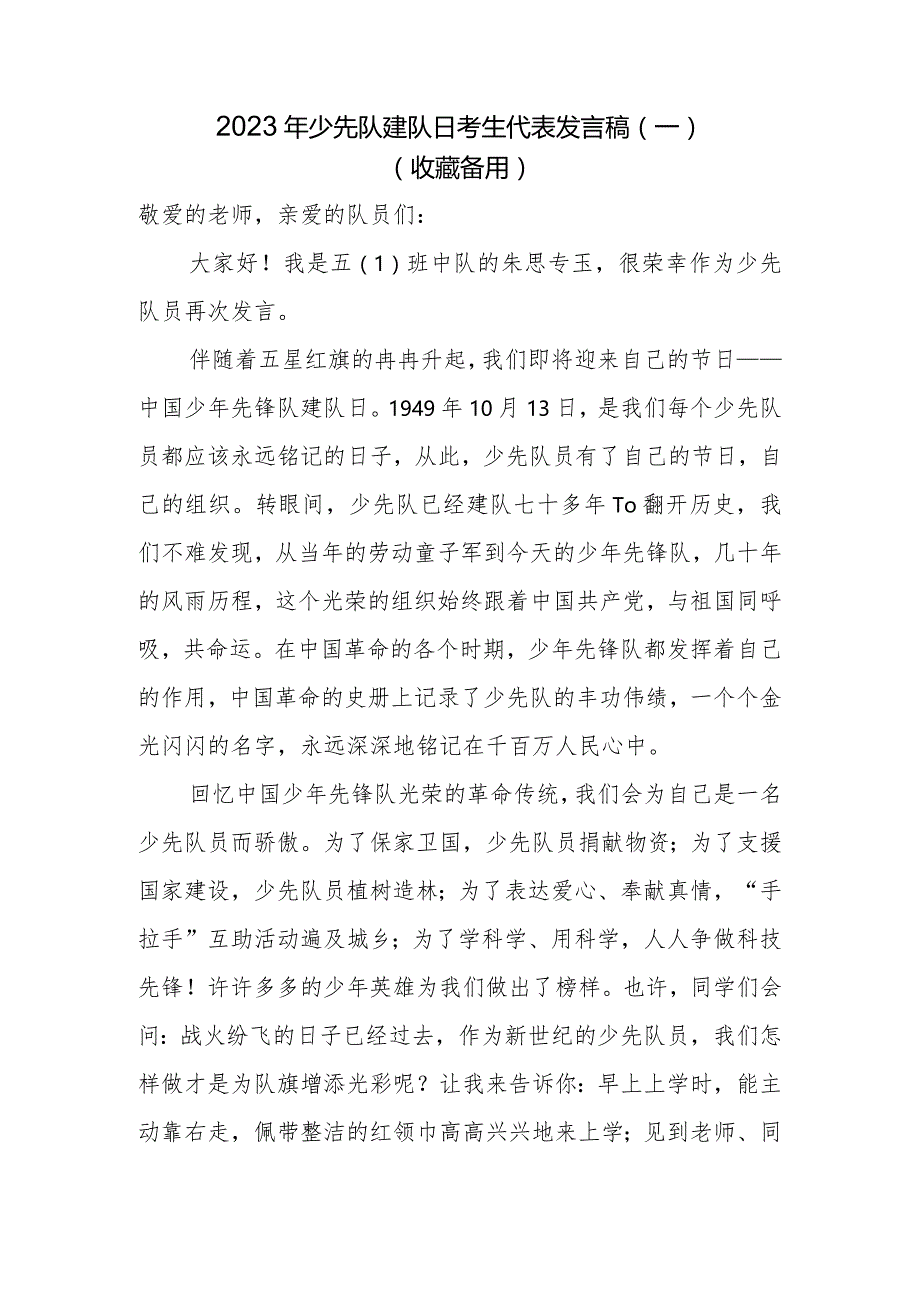 2023 年少先队建队日考生代表发言稿（一）
（收藏备用）
敬爱的老师，亲爱的队员们：
大家好！我是五（1）班中队的朱思专玉，很荣幸作为少先
队员再次发言。
伴随着五星红旗的冉冉升起，我们即将迎来自己的节日——
中国少年先锋队建队日。1949 年 10 月 13 日，是我们每个少先队
员都应该永远铭记的日子，从此，少先队员有了自己的节日，自
己的组织。转眼间，少先队已经建队七十多年 To 翻开历史，我
们不难发现，从当年的劳动童子军到今天的少年先锋队，几十年
的风雨历程，这个光荣的组织始终跟着中国共产党，与祖国同呼
吸，共命运。在中国革命的各个时期，少年先锋队都发挥着自己
的作用，中国革命的史册上记录了少先队的丰功伟绩，一个个金
光闪闪的名字，永远深深地铭记在千百万人民心中。
回忆中国少年先锋队光荣的革命传统，我们会为自己是一名
少先队员而骄傲。为了保家卫国，少先队员捐献物资；为了支援
国家建设，少先队员植树造林；为了表达爱心、奉献真情，“手
拉手”互助活动遍及城乡；为了学科学、用科学，人人争做科技
先锋！许许多多的少年英雄为我们做出了榜样。也许，同学们会
问：战火纷飞的日子已经过去，作为新世纪的少先队员，我们怎
样做才是为队旗增添光彩呢？让我来告诉你：早上上学时，能主
动靠右走，佩带整洁的红领巾高高兴兴地来上学；见到老师、同